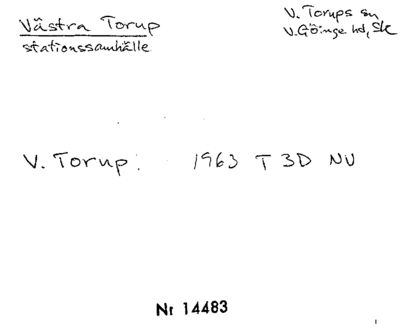 Västra Torup
stationssamhälle
V. Torups sn
V. Göinge hd, Sk
V. Torup: 1963 T 3D NV
Nr 14483